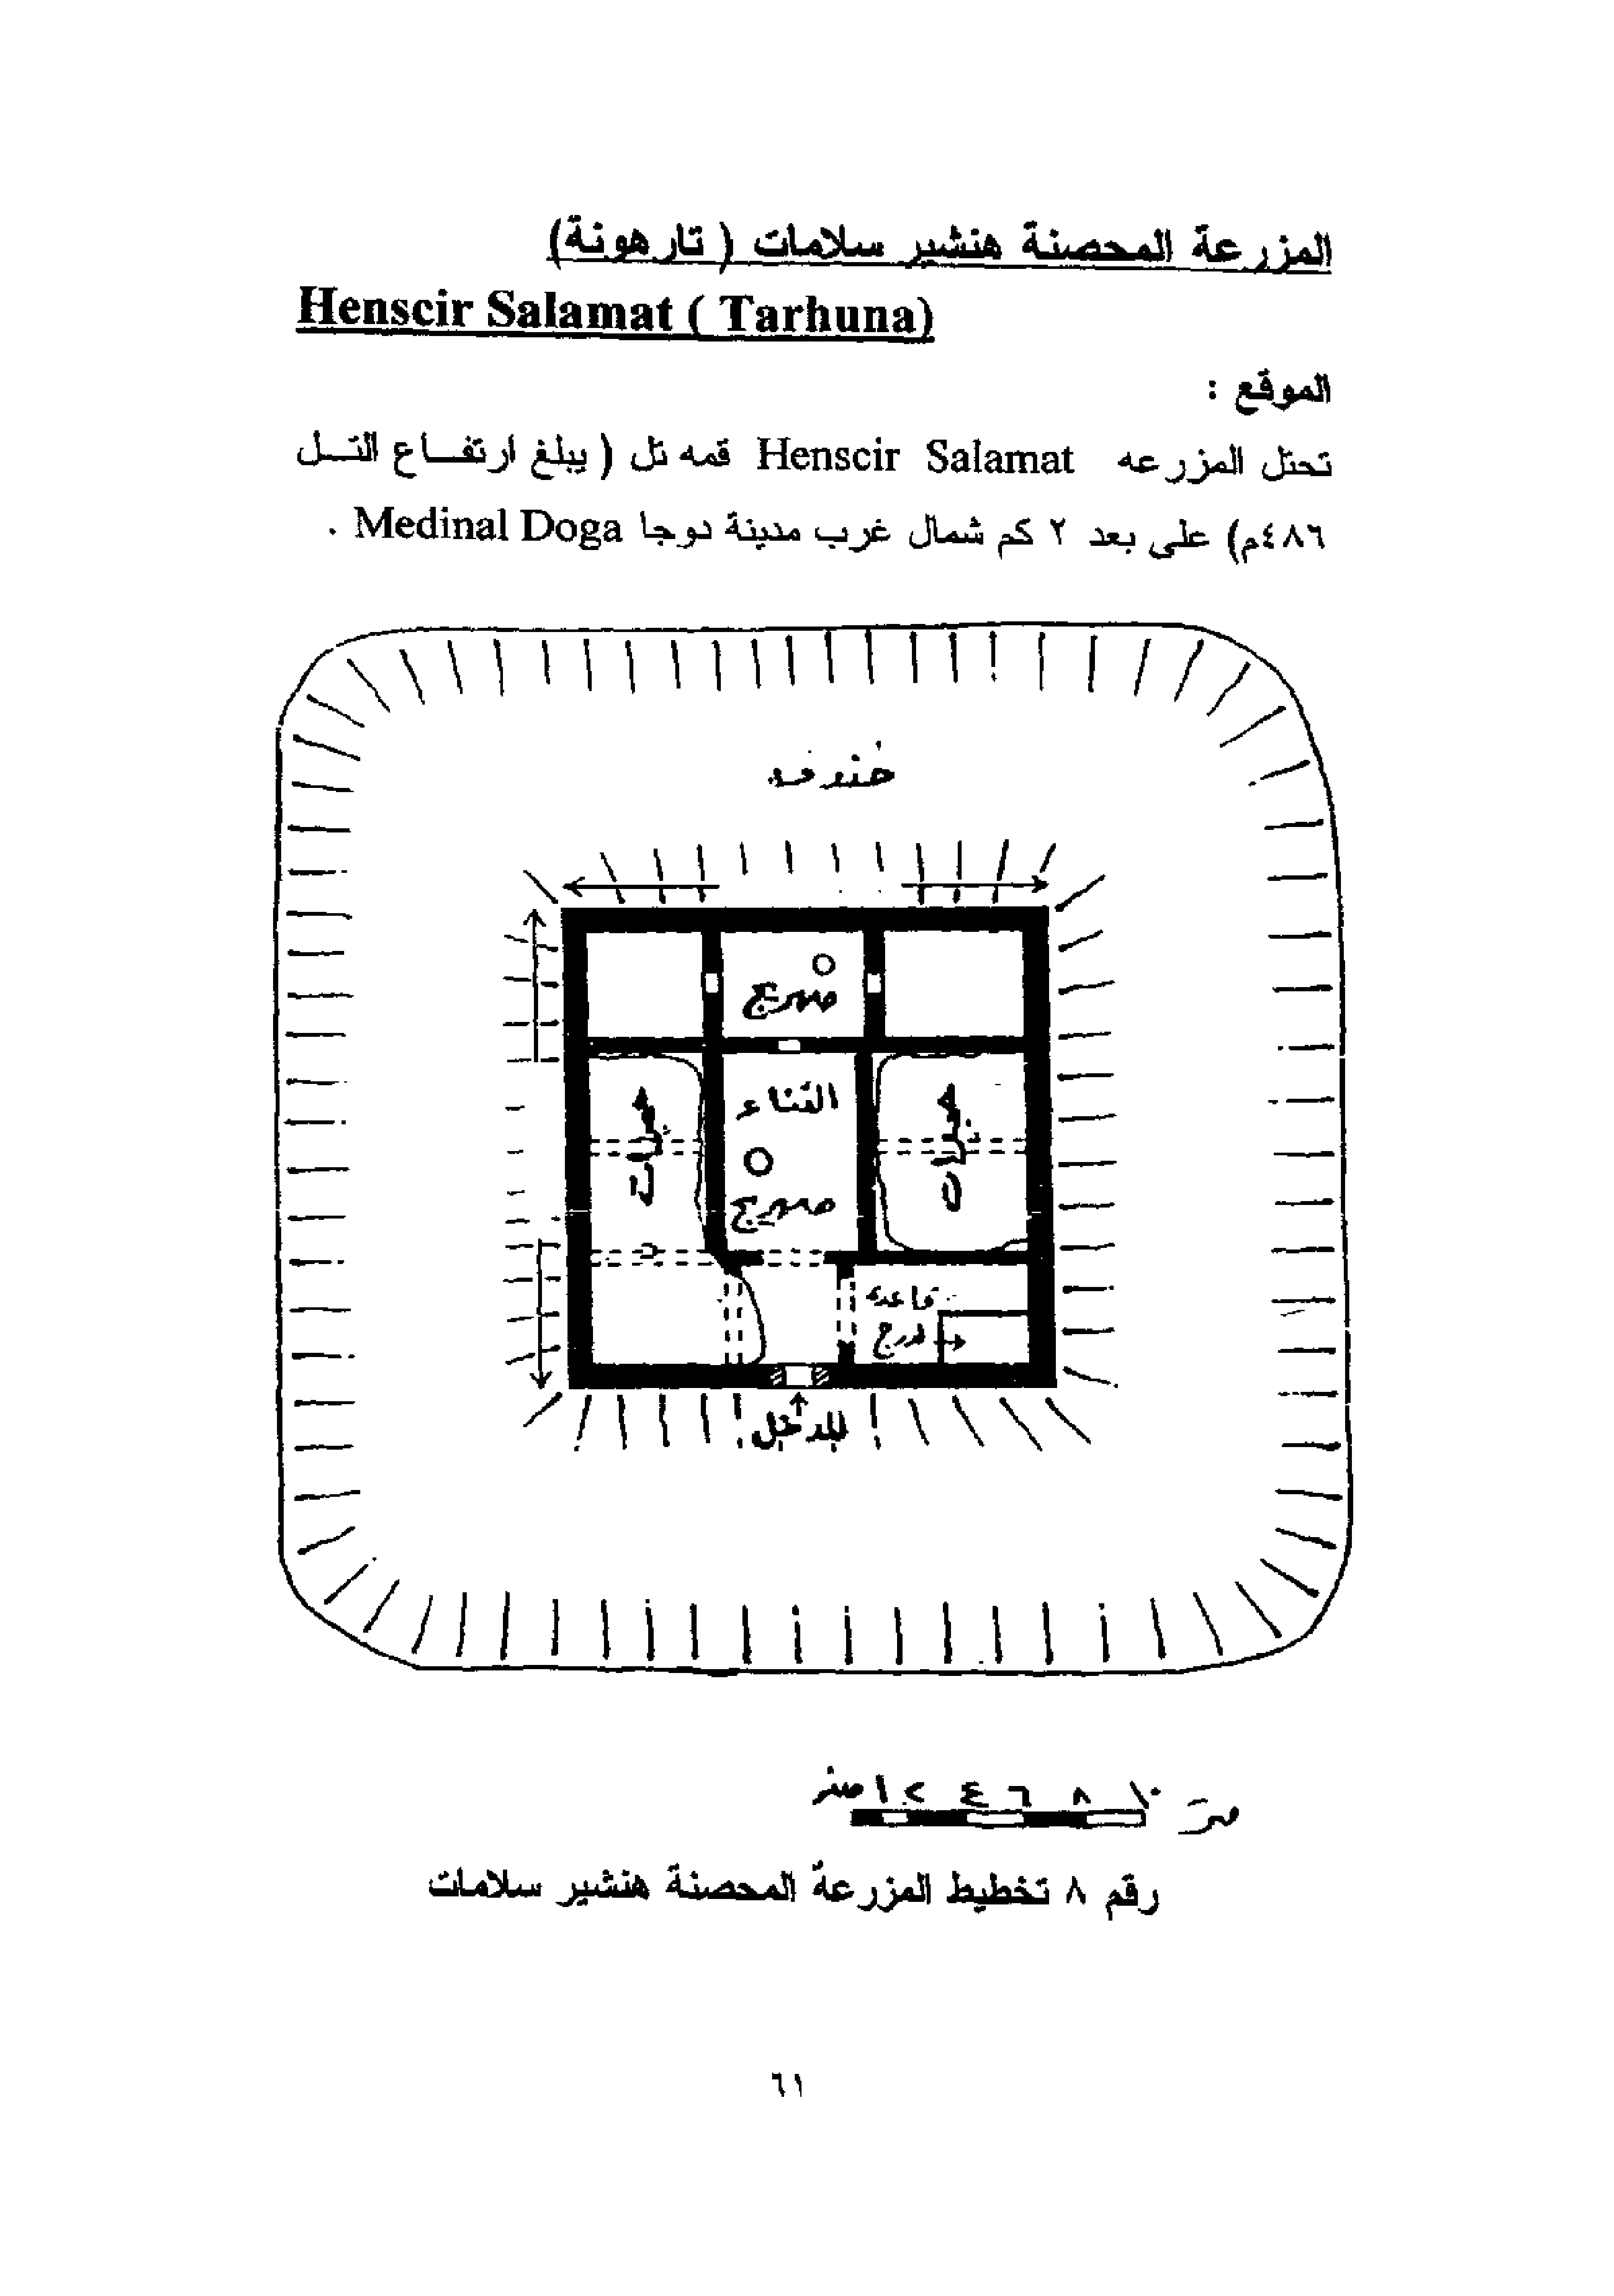 المزرعة المحصنة هنشير سلامات ( تارهونة)
Henscir Salamat ( Tarhuna)
الموقع :
تحتل المزرعه Henscir Salamat قمه تل ( يبلغ ارتفاع التل
٤٨٦م) على بعد ٢ كم شمال غرب مدينة دوجا Medinal Doga .
خندق
صهريج
الفناء
حجرات
حجرات
صهريج
قاعدة
درج
المدخل
صفر ١ ٢ ٤ ٦ ٨ ١٠ متر
رقم ٨ تخطيط المزرعة المحصنة هنشير سلامات
٦١